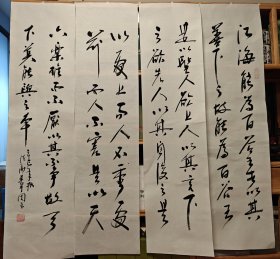 江海能為百谷王者以其
善下之故能為百谷王
是以聖人欲上人以其言下
之欲先人以其身後之是
以處上而人不重處
前而人不害是以天
下樂推而不厭以其不爭故天
下莫能與之爭